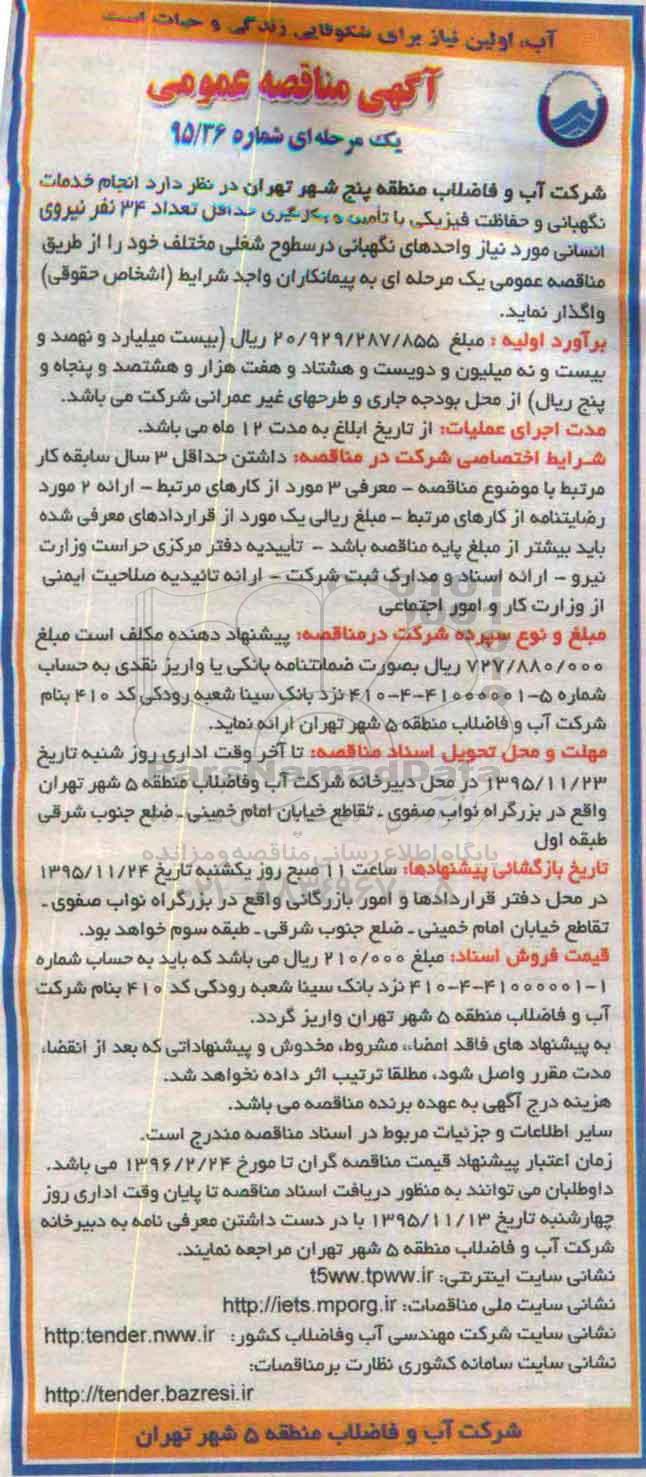 آب، اولین نیاز برای شکوفایی زندگی و حیات است
آگهی مناقصه عمومی
یک مرحله ای شماره ۹۵/۳۶
شرکت آب و فاضلاب منطقه پنج شهر تهران در نظر دارد انجام خدمات
نگهبانی و حفاظت فیزیکی با تأمین و بکارگیری حداقل تعداد ۳۴ نفر نیروی
انسانی مورد نیاز واحدهای نگهبانی درسطوح شغلی مختلف خود را از طریق
مناقصه عمومی یک مرحله ای به پیمانکاران واجد شرایط (اشخاص حقوقی)
واگذار نماید.
برآورد اولیه : مبلغ ۲۰/۹۲۹/۲۸۷/۸۵۵ ریال (بیست میلیارد و نهصد و
بیست و نه میلیون و دویست و هشتاد و هفت هزار و هشتصد و پنجاه و
پنج ریال) از محل بودجه جاری و طرحهای غیر عمرانی شرکت می باشد.
مدت اجرای عملیات: از تاریخ ابلاغ به مدت ۱۲ ماه می باشد.
شرایط اختصاصی شرکت در مناقصه: داشتن حداقل ۳ سال سابقه کار
مرتبط با موضوع مناقصه - معرفی ۳ مورد از کارهای مرتبط - ارائه ۲ مورد
رضایتنامه از کارهای مرتبط - مبلغ ریالی یک مورد از قراردادهای معرفی شده
باید بیشتر از مبلغ پایه مناقصه باشد - تأییدیه دفتر مرکزی حراست وزارت
نیرو - ارائه اسناد و مدارک ثبت شرکت - ارائه تائیدیه صلاحیت ایمنی
از وزارت کار و امور اجتماعی
مبلغ و نوع سپرده شرکت درمناقصه: پیشنهاد دهنده مکلف است مبلغ
۷۲۷/۸۸۰/۰۰۰ ریال بصورت ضمانتنامه بانکی یا واریز نقدی به حساب
شماره ۵-۴۱۰۰۰۰۰۱-۴-۴۱۰ نزد بانک سینا شعبه رودکی کد ۴۱۰ بنام
شرکت آب و فاضلاب منطقه ۵ شهر تهران ارائه نماید.
مهلت و محل تحویل اسناد مناقصه: تا آخر وقت اداری روز شنبه تاریخ
۱۳۹۵/۱۱/۲۳ در محل دبیرخانه شرکت آب وفاضلاب منطقه ۵ شهر تهران
واقع در بزرگراه نواب صفوی ـ تقاطع خیابان امام خمینی ـ ضلع جنوب شرقی
طبقه اول
ParsNamadData
پایگاه اطلاع رسانی مناقصه و مزایده
تاریخ بازگشائی پیشنهادها: ساعت ۱۱ صبح روز یکشنبه تاریخ ۱۳۹۵/۱۱/۲۴
در محل دفتر قراردادها و امور بازرگانی واقع در بزرگراه نواب صفوی ـ
تقاطع خیابان امام خمینی ـ ضلع جنوب شرقی ـ طبقه سوم خواهد بود.
قیمت فروش اسناد: مبلغ ۲۱۰/۰۰۰ ریال می باشد که باید به حساب شماره
۱-۴۱۰۰۰۰۰۱-۴-۴۱۰ نزد بانک سینا شعبه رودکی کد ۴۱۰ بنام شرکت
آب و فاضلاب منطقه ۵ شهر تهران واریز گردد.
به پیشنهاد های فاقد امضاء، مشروط، مخدوش و پیشنهاداتی که بعد از انقضاء
مدت مقرر واصل شود، مطلقا ترتیب اثر داده نخواهد شد.
هزینه درج آگهی به عهده برنده مناقصه می باشد.
سایر اطلاعات و جزئیات مربوط در اسناد مناقصه مندرج است.
زمان اعتبار پیشنهاد قیمت مناقصه گران تا مورخ ۱۳۹۶/۲/۲۴ می باشد.
داوطلبان می توانند به منظور دریافت اسناد مناقصه تا پایان وقت اداری روز
چهارشنبه تاریخ ۱۳۹۵/۱۱/۱۳ با در دست داشتن معرفی نامه به دبیرخانه
شرکت آب و فاضلاب منطقه ۵ شهر تهران مراجعه نمایند.
نشانی سایت اینترنتی: t5ww.tpww.ir
نشانی سایت ملی مناقصات: http://iets.mporg.ir
نشانی سایت شرکت مهندسی آب وفاضلاب کشور: http:tender.nww.ir
نشانی سایت سامانه کشوری نظارت برمناقصات:
http://tender.bazresi.ir
شرکت آب و فاضلاب منطقه ۵ شهر تهران